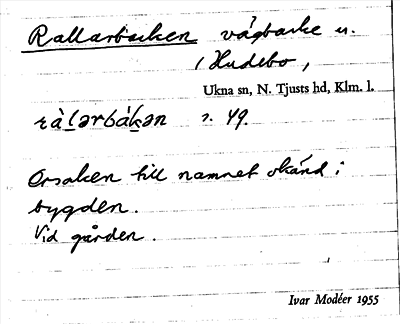 Rallarbacken vägbacke u.
i Hudebo,
Ukna sn, N. Tjusts hd, Klm. l.
ràlarbák̠ən 49.
Orsaken till namnet okänd i
bygden.
Vid gården.
Ivar Modéer 1955